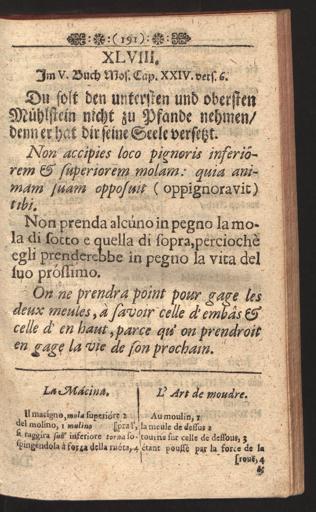 (191)
XLVIII.
Im V. Buch Mos. Cap. XXIV. vers. 6.
Du solt den untersten und obersten
Mühlstein nicht zu Pfande nehmen/
denn er hat dir seine Seele versetzt.
Non accipies loco pignoris inferiō-
rem & superiorem molam: quia ani-
mam suam opposuit (oppignoravit)
tibi.
Non prenda alcúno in pegno la mo-
la di sotto e quella di sopra, perciochè
egli prenderebbe in pegno la vita del
suo próssimo.
On ne prendra point pour gage les
deux meules, à savoir celle d'embàs &
celle d'en haut, parce qu'on prendroit
en gage la vie de son prochain.
La Mácina.
Il macigno, mola superióre 2
del molino, 1 mulino [pra l',
si raggira sull' inferiore torna so-
spingéndola à forza della ruóta, 4
L'Art de moudre.
Au moulin, 1
la meule de dessus 2
tourne sur celle de dessous, 3
étant poussé par la force de la
[rouë, 4